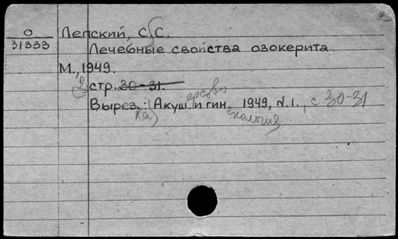 О
31333
Лепский, С. С.
Лечебные свойства озокерита.
М., 1949.
2 стр. 30-31.
Вырез.: (Акуш. и гин., 1949, №1., с 30-31